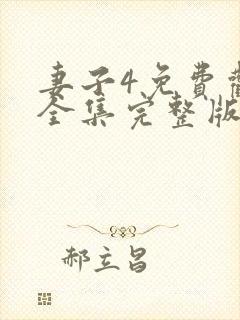 妻子4免費觀
全集完整版
郝立昌